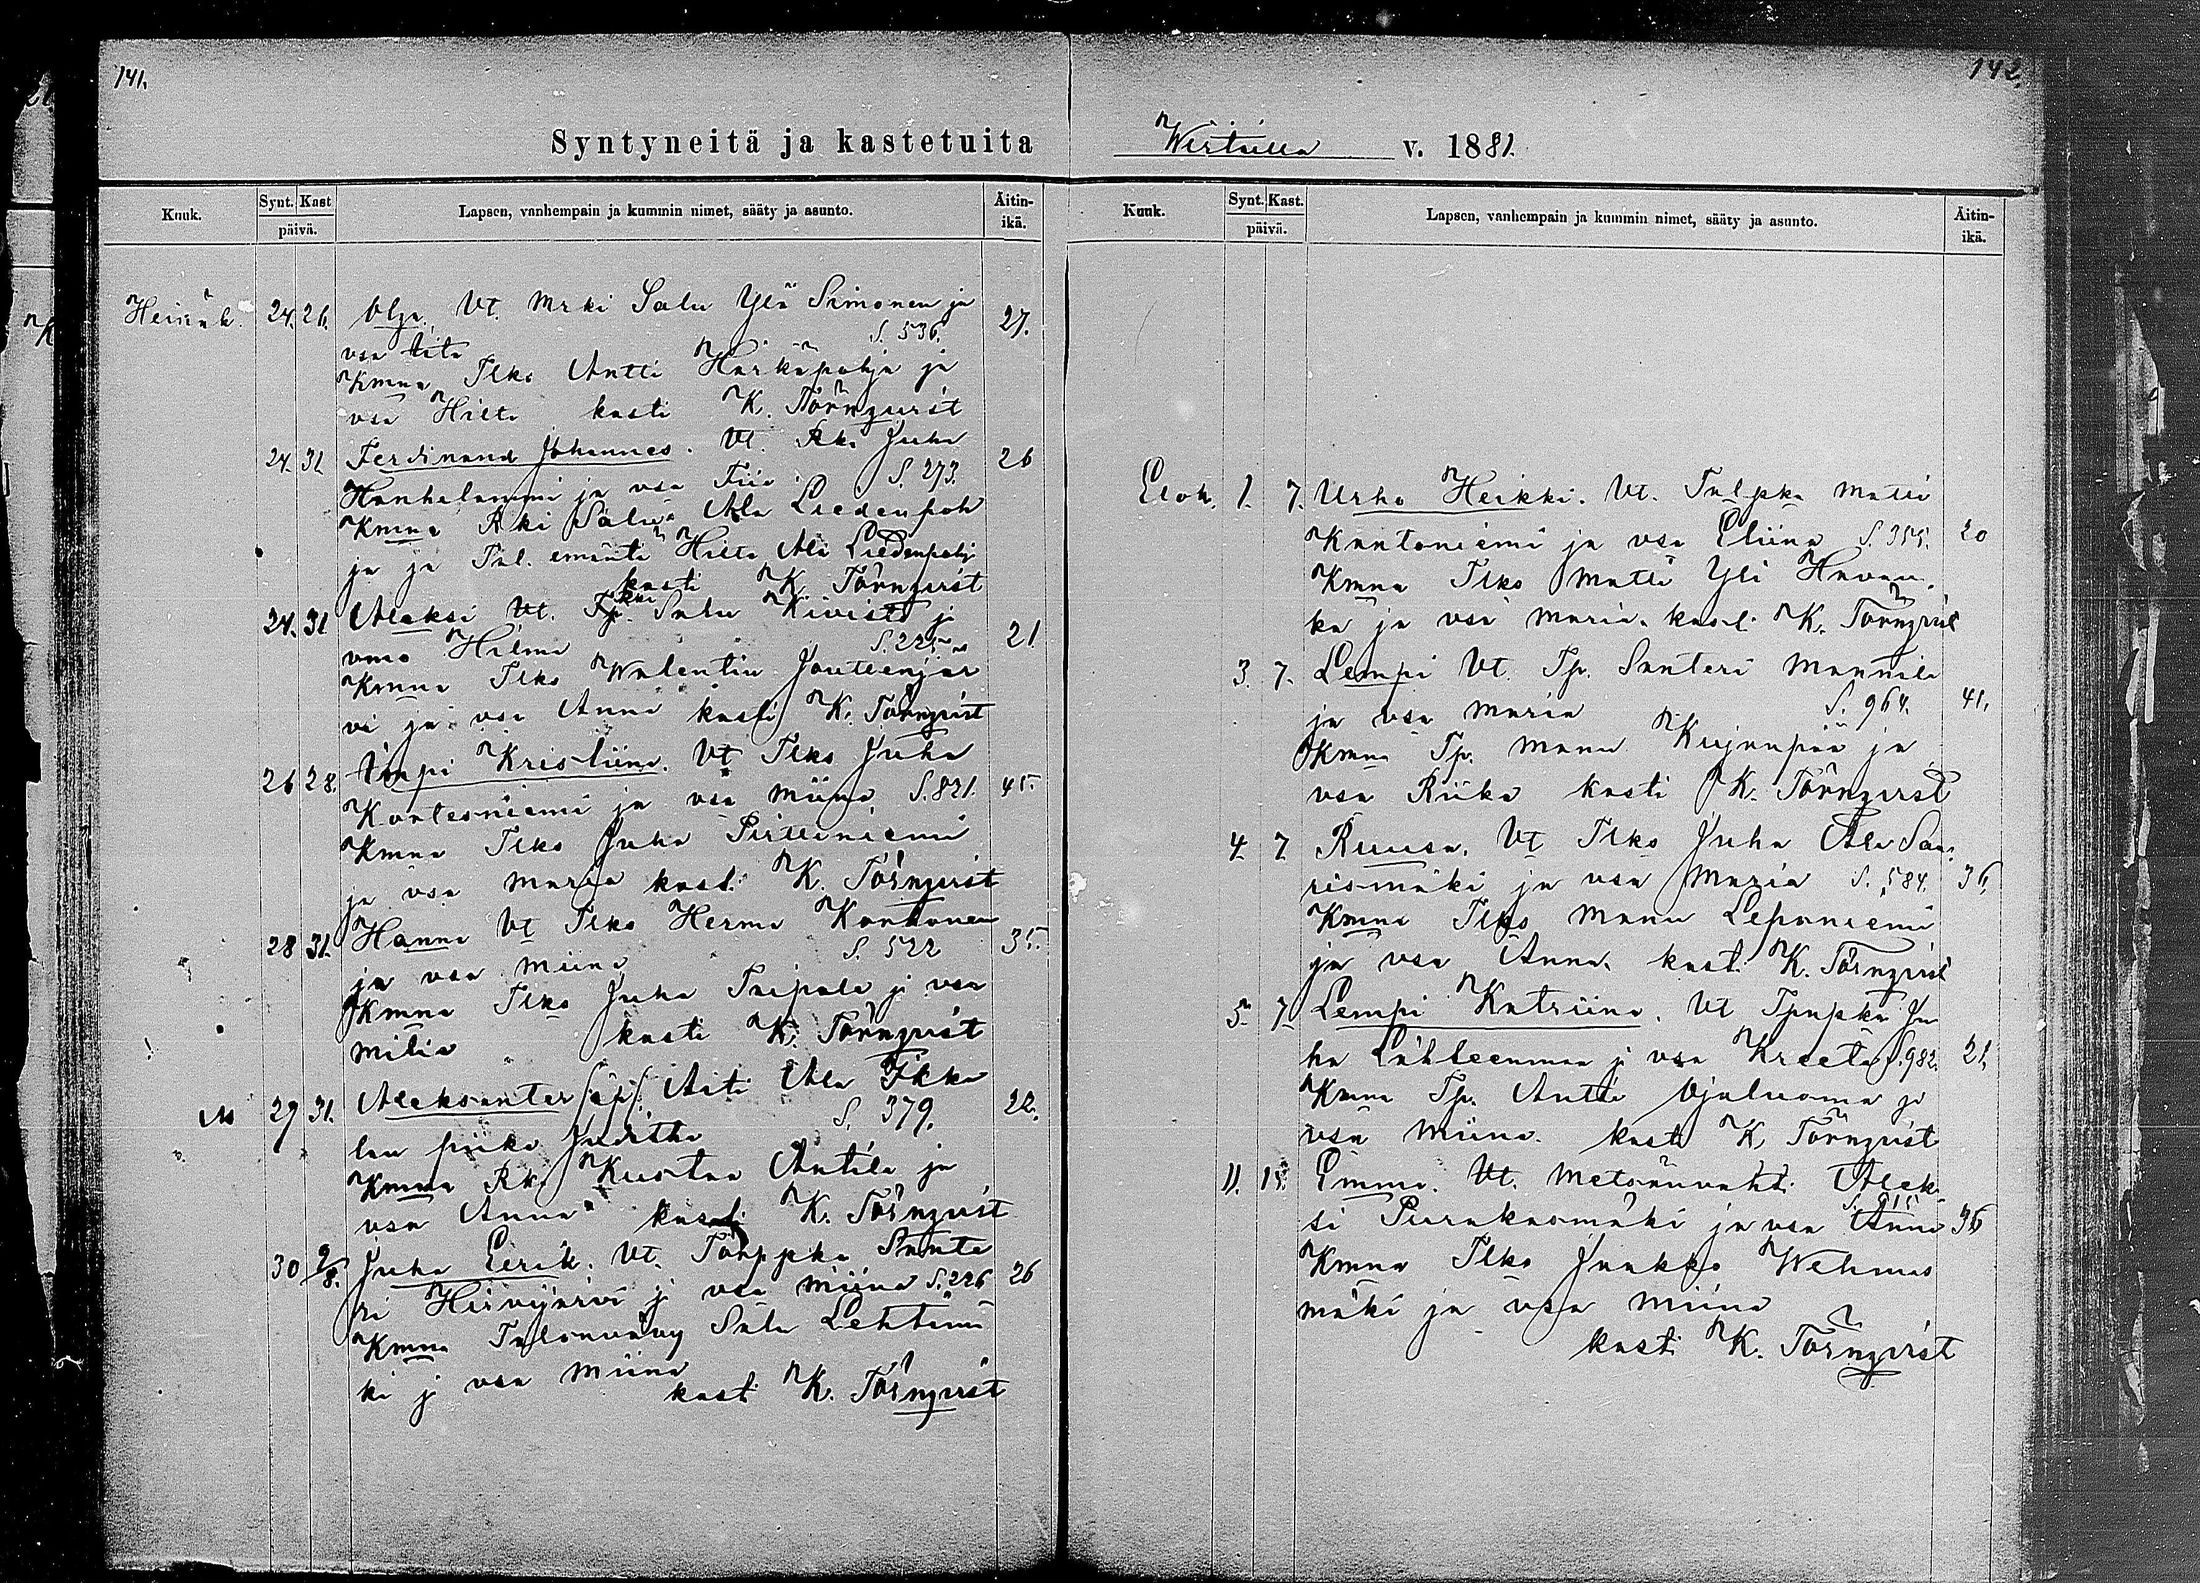 141.
Syntyneitä ja kastetuita
Kuuk. Synt. Kast päivä. Lapsen, vanhempain ja kummin nimet, sääty ja asunto. Äitin-ikä.
Heinäk. 24. 26. Olga. Vt. Mrki Salu Ylä Simonen ja 27.
vsa Iita S. 536.
Kmna Tlko Antti Härkäpohja ja
vsa Hilta kasti K. Törnqvist
24. 31. Ferdinand Johannes. Vt. Rk. Juha 26
Hanhelammi ja vsa Fiia. S. 273.
Kmna Rki Salu Ala Liedenpoh
ja ja Tal. emäntä Hilta Ala Liedenpohj
kasti K. Törnqvist
24. 31 Aleksi Vt. Salu Kivistö j 21
vmo Hilma S. 225
Kmna Tlko Walentin Jouttenjär
vi ja vsa Anna kasti K. Törnqvist
26 28. Impi Kristiina. Vt Tlko Juha
Kortesniemi ja vsa Miina S. 821. 45.
Kmna Tlko Juha Pirttiniemi
ja vsa Maria kast. K. Törnqvist
28 31. Hanna Vt Tlko Herma Korkonen 35.
ja vsa Miina S. 522
Kmna Tlko Juha Taipale j vsa
Milia kasti K. Törnqvist
M 29 31. Aleksanter /:äp:/ Äiti Ala Ikka 22.
lan piika Juditha S. 379.
Kmna Rk. Kustaa Antila ja
vsa Anna kasti K. Törnqvist
30 2/8. Juha Eerik. Vt. Torppka Sante
ri Hirvijärvi j vsa Miina S. 226 26
Kmna Talonvävy Salu Lehtimä
ki j vsa Miina
kast. K. Törnqvist
142.
Wirtailla v. 1881.
Kuuk. Synt. Kast. päivä. Lapsen, vanhempain ja kummin nimet, sääty ja asunto. Äitin-ikä.
Elok. 1. 7. Urho Heikki. Vt. Talpka Matti
Kantoniemi ja vsa Eliina S. 355. 20
Kmna Tlko Matti Yli Havan.
ka ja vsa Maria. kast. K. Törnqvist
3. 7. Lempi Vt. Tp. Santeri Mannila
ja vsa Maria S. 964. 41.
Kmna Tp. Manu Kujanpää ja
vsa Riika kasti K. Törnqvist
4. 7. Ruusa. Vt Tlko Juha Ala Saa-
rismäki ja vsa Maria S. 584. 36.
Kmna Tlko Manu Lepaniemi
ja vsa Anna. kast. K. Törnqvist
5. 7. Lempi Katriina. Vt Tpapka Ju
ha Lähteenmaa j vsa Kreeta S. 982. 21.
Kmna Tp. Antti Ojaluoma ja
vsa Miina. kast K. Törnqvist
11. 15. Emma. Vt. Metsänvahti Alek
si Purakasmäki ja vsa Anna 36
Kmna Tlko Jaakko Wehmas
mäki ja vsa Miina
kast. K. Törnqvist